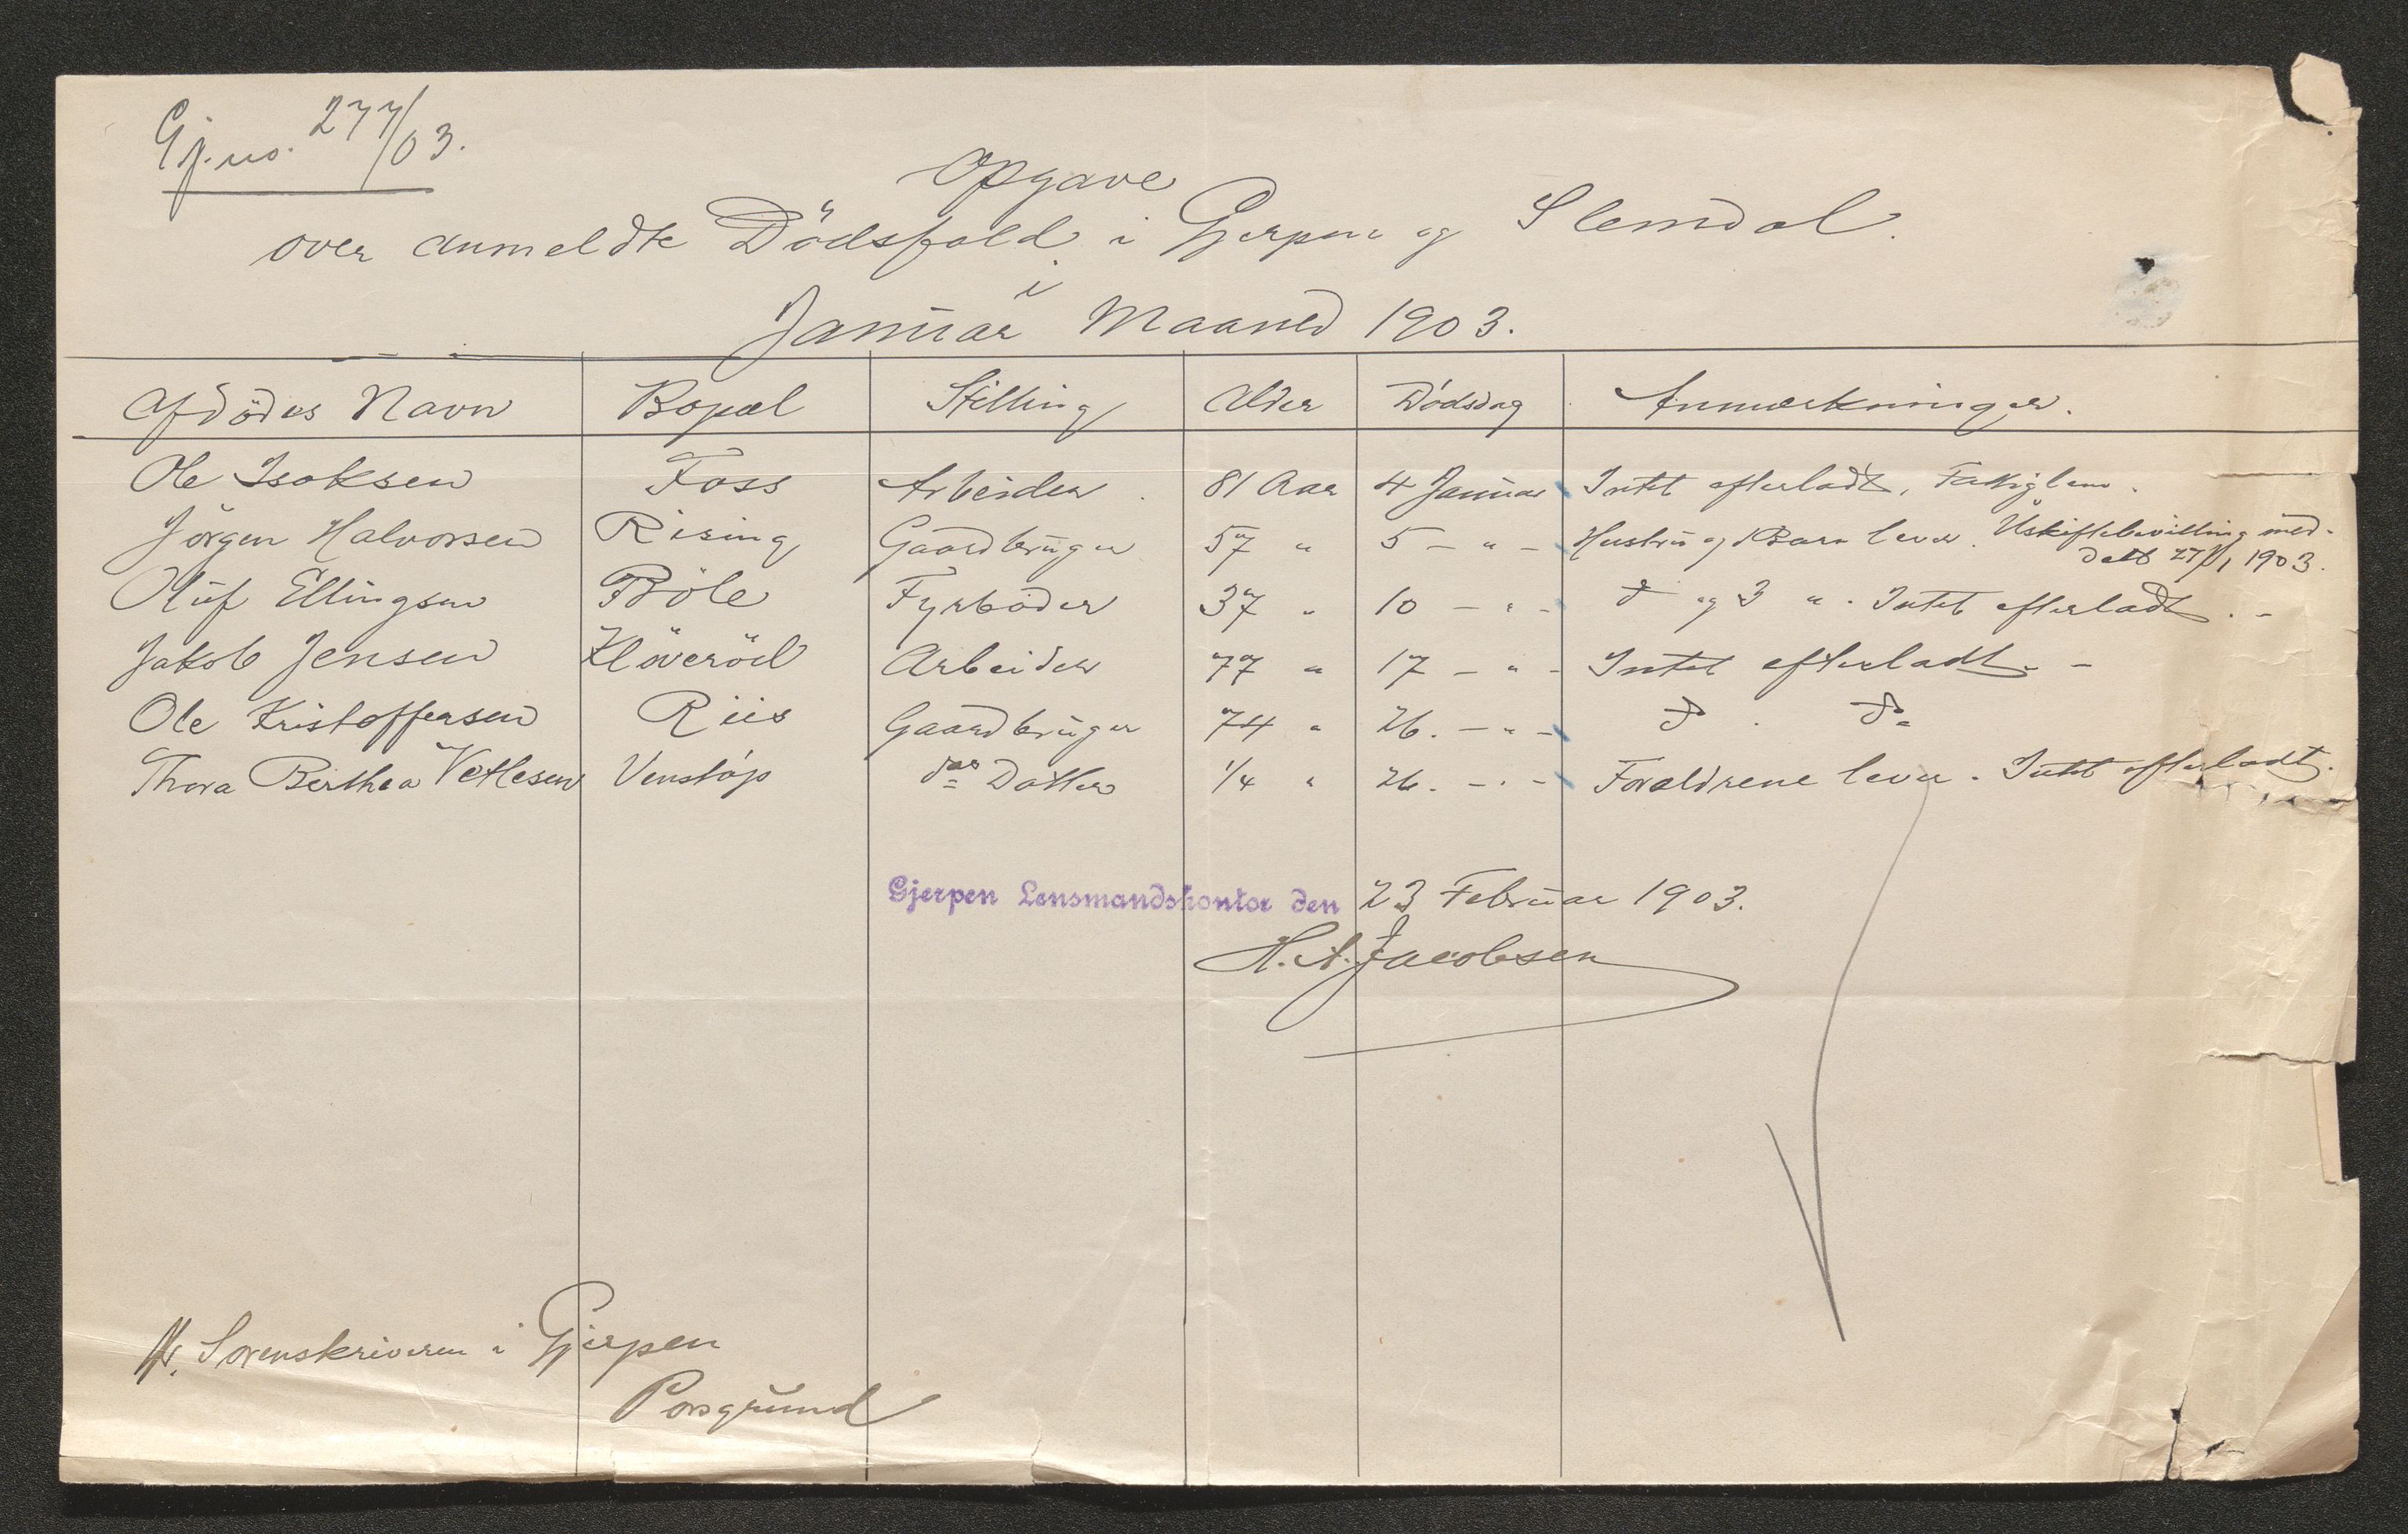 Gj.no. 277/03.
Opgave
over anmeldte Dödsfald i Gjerpen og Slemdal.
i
Januar Maaned 1903.
Afdödes Navn Bopæl Stilling Alder Dödsdag Anmærkninger.
Ole Isaksen Foss Arbeider. 81 Aar 4 Januar Intet efterladt, Fattiglem.
Jörgen Halvorsen Rising Gaardbruger 57 " 5 - " - Hustru og Barn lever. Uskiftebevilling med-
delt 27/1 1903.
Oluf Ellingsen Böle Fyrböder 37 " 10 - " - do og 3 " . Intet efterladt. -
Jakob Jensen Klöveröd Arbeider 77 " 17 - " - Intet efterladt. -
Ole Kristoffersen Riis Gaardbruger 74 " 26. - " - do . do
Thora Berthea Vetlesen Venstöp des Datter 1/4 " 26. - " - Forældrene lever. Intet efterladt.
Gjerpen Lensmandskontor den 23 Februar 1903.
H. A. Jacobsen
Hr. Sorenskriveren i Gjerpen
Porsgrund